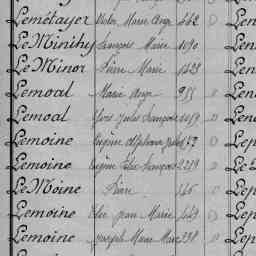 Lemétayer Victor Marie Ange 462 D Len
Le Minihy François Marie 1090 Len
Le Minor Pierre Marie 1623 Len
Lemoal Marie Ange 955 D Len
Lemoal Yves Jules François 1059 D Len
Lemoine Eugène Alphonse Jules D Lep
Lemoine Eugène Elie François 2219 D Le
Le Moine Pierre 146 D Lep
Lemoine Elie Jean Marie 449 D Lep
Lemoine Joseph Marie 298 D Lep